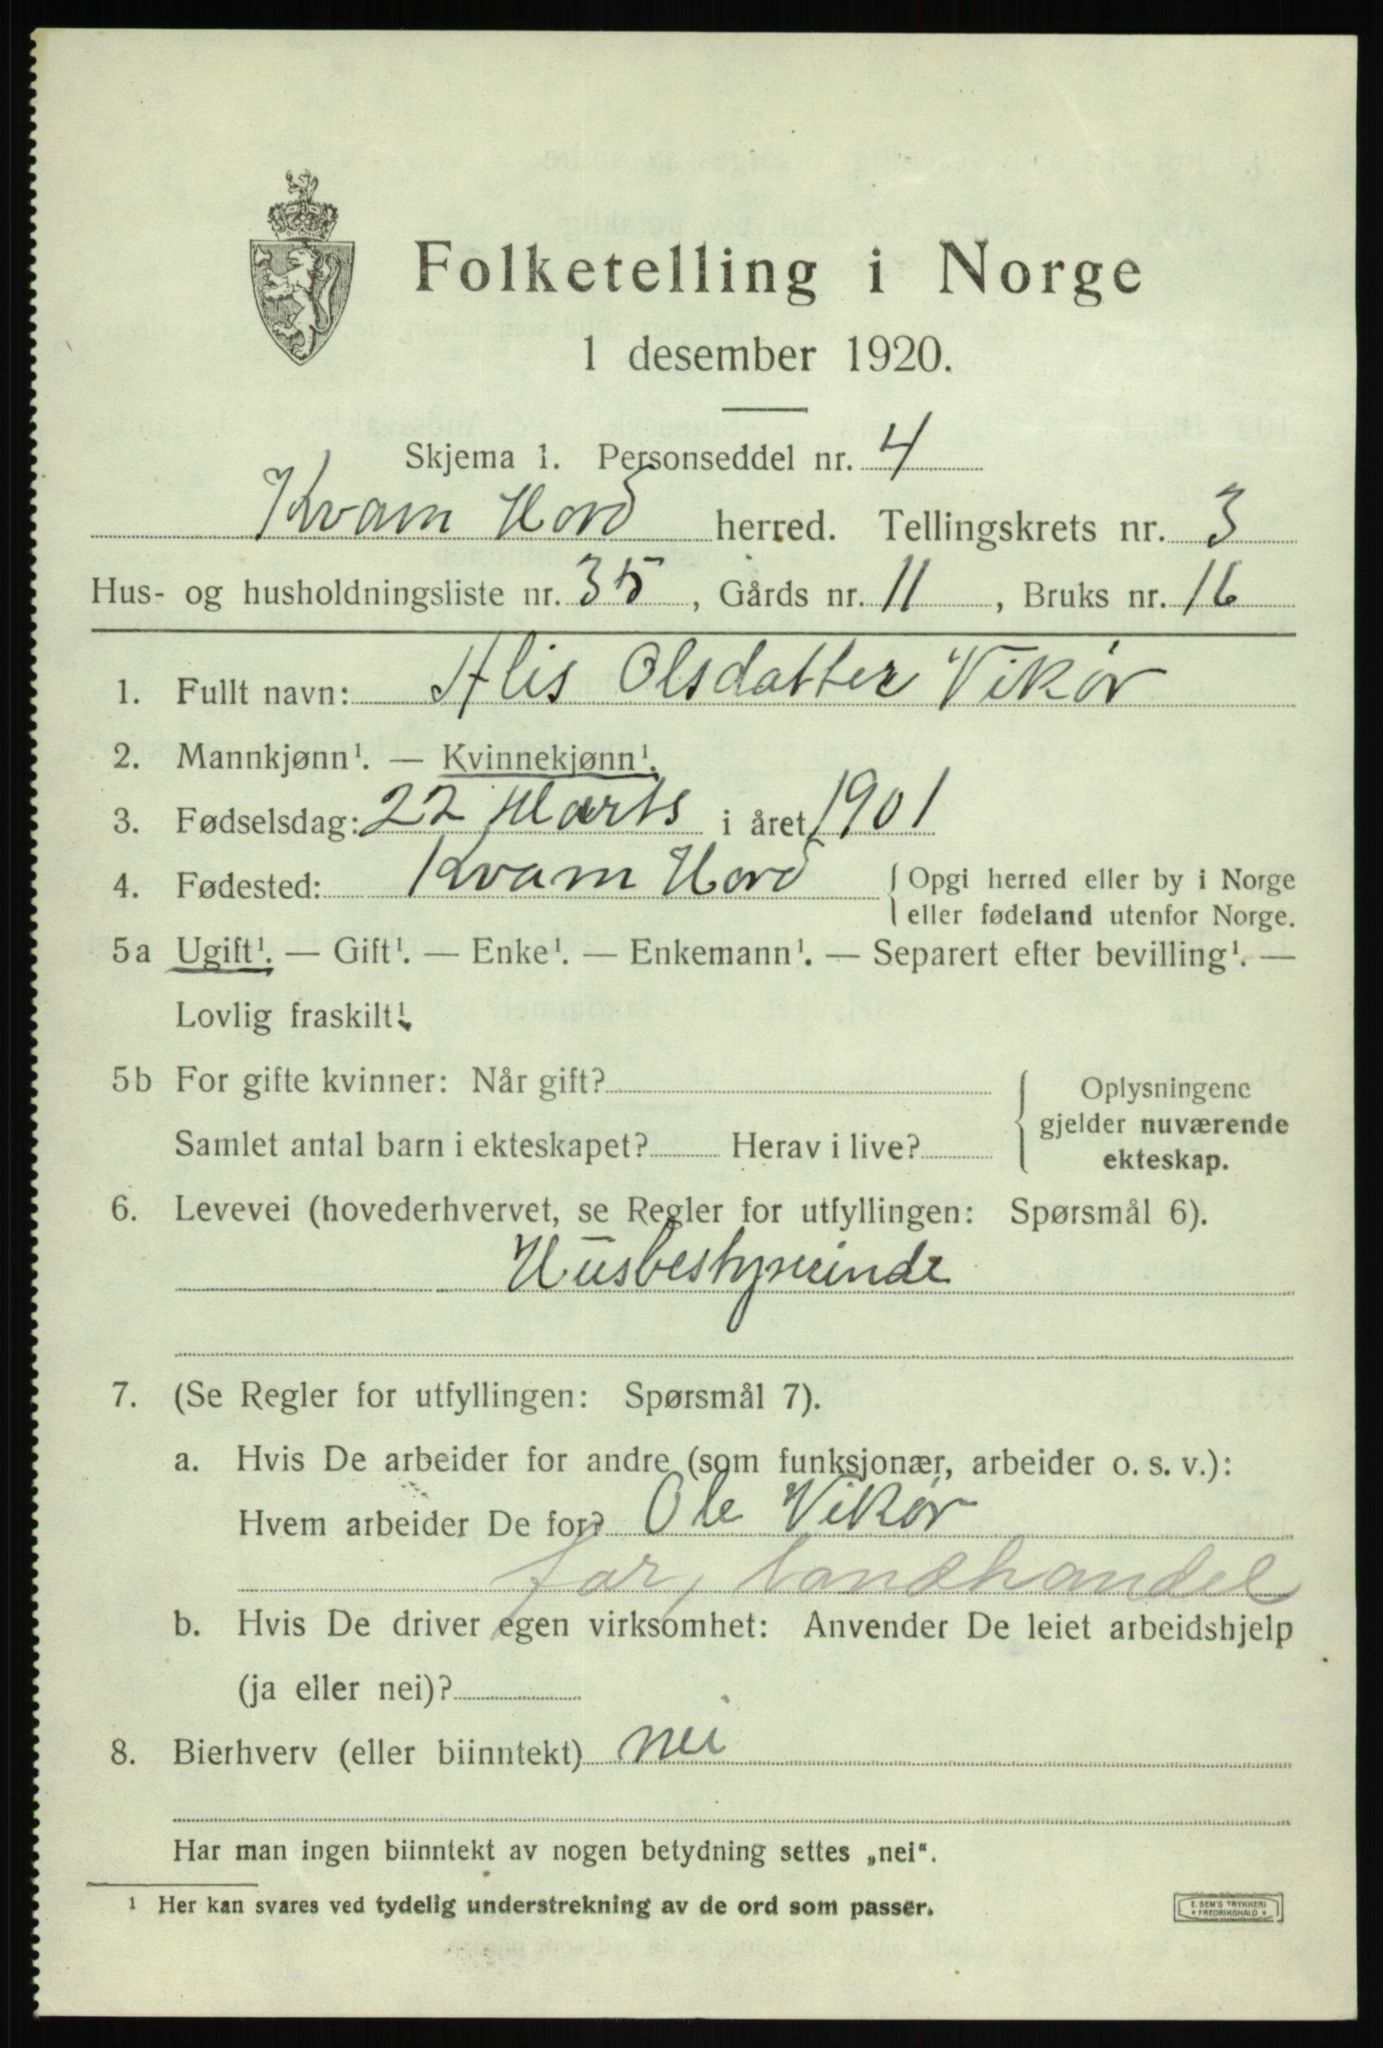 Folketelling i Norge
1 desember 1920.
Skjema 1. Personseddel nr. 4
Kvam Hord herred. Tellingskrets nr. 3
Hus- og husholdningsliste nr. 35, Gårds nr. 11, Bruks nr. 16
1. Fullt navn: Alis Olsdatter Vikør
2. Mannkjønn¹. — Kvinnekjønn¹.
3. Fødselsdag: 22 Marts i året 1901
4. Fødested: Kvam Hord { Opgi herred eller by i Norge
eller fødeland utenfor Norge.
5a Ugift¹. — Gift¹. — Enke¹. — Enkemann¹. — Separert efter bevilling¹. —
Lovlig fraskilt¹.
5b For gifte kvinner: Når gift?
Samlet antal barn i ekteskapet? Herav i live?
Oplysningene
gjelder nuværende
ekteskap.
6. Levevei (hovederhvervet, se Regler for utfyllingen: Spørsmål 6).
Husbestyreinde
7. (Se Regler for utfyllingen: Spørsmål 7).
a. Hvis De arbeider for andre (som funksjonær, arbeider o. s. v.):
Hvem arbeider De for? Ole Vikør
far, landhandel
b. Hvis De driver egen virksomhet: Anvender De leiet arbeidshjelp
(ja eller nei)?
8. Bierhverv (eller biinntekt) nei
Har man ingen biinntekt av nogen betydning settes „nei“.
¹ Her kan svares ved tydelig understrekning av de ord som passer.
E. SEM'S TRYKKERI
* FREDRIKSHALD *